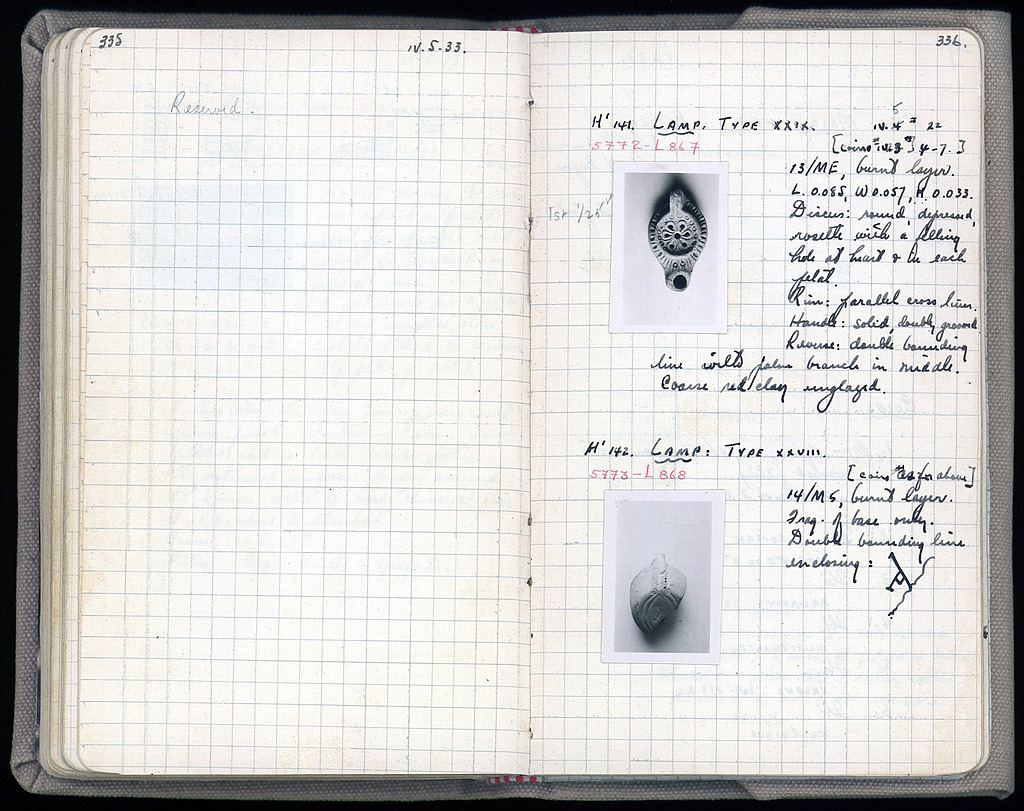 335
IV. 5. 33.
Reserved.
336.
H' 141. LAMP. TYPE XXIX.
5
IV. 4 # 22
5772-L867
[coins 4-7.]
13/ME, burnt layer.
L. 0.085, W 0.057, H. 0.033.
Discus: round, depressed,
rosette with a filling
hole at heart & in each
petal.
Rim: parallel cross lines.
Handle: solid, doubly grooved
Reverse: double bounding
line with palm branch in middle.
Coarse red clay unglazed.
H' 142. LAMP: TYPE XXVIII.
5773-L868
[coins as for above]
14/MS, burnt layer.
Frag. of base only.
Double bounding line
enclosing: